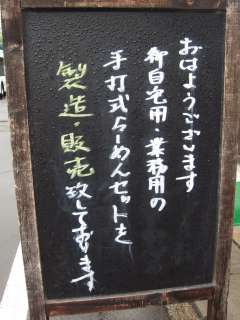 おはようございます
御自宅用・業務用の
手打式らーめんセットを
製造・販売致しております